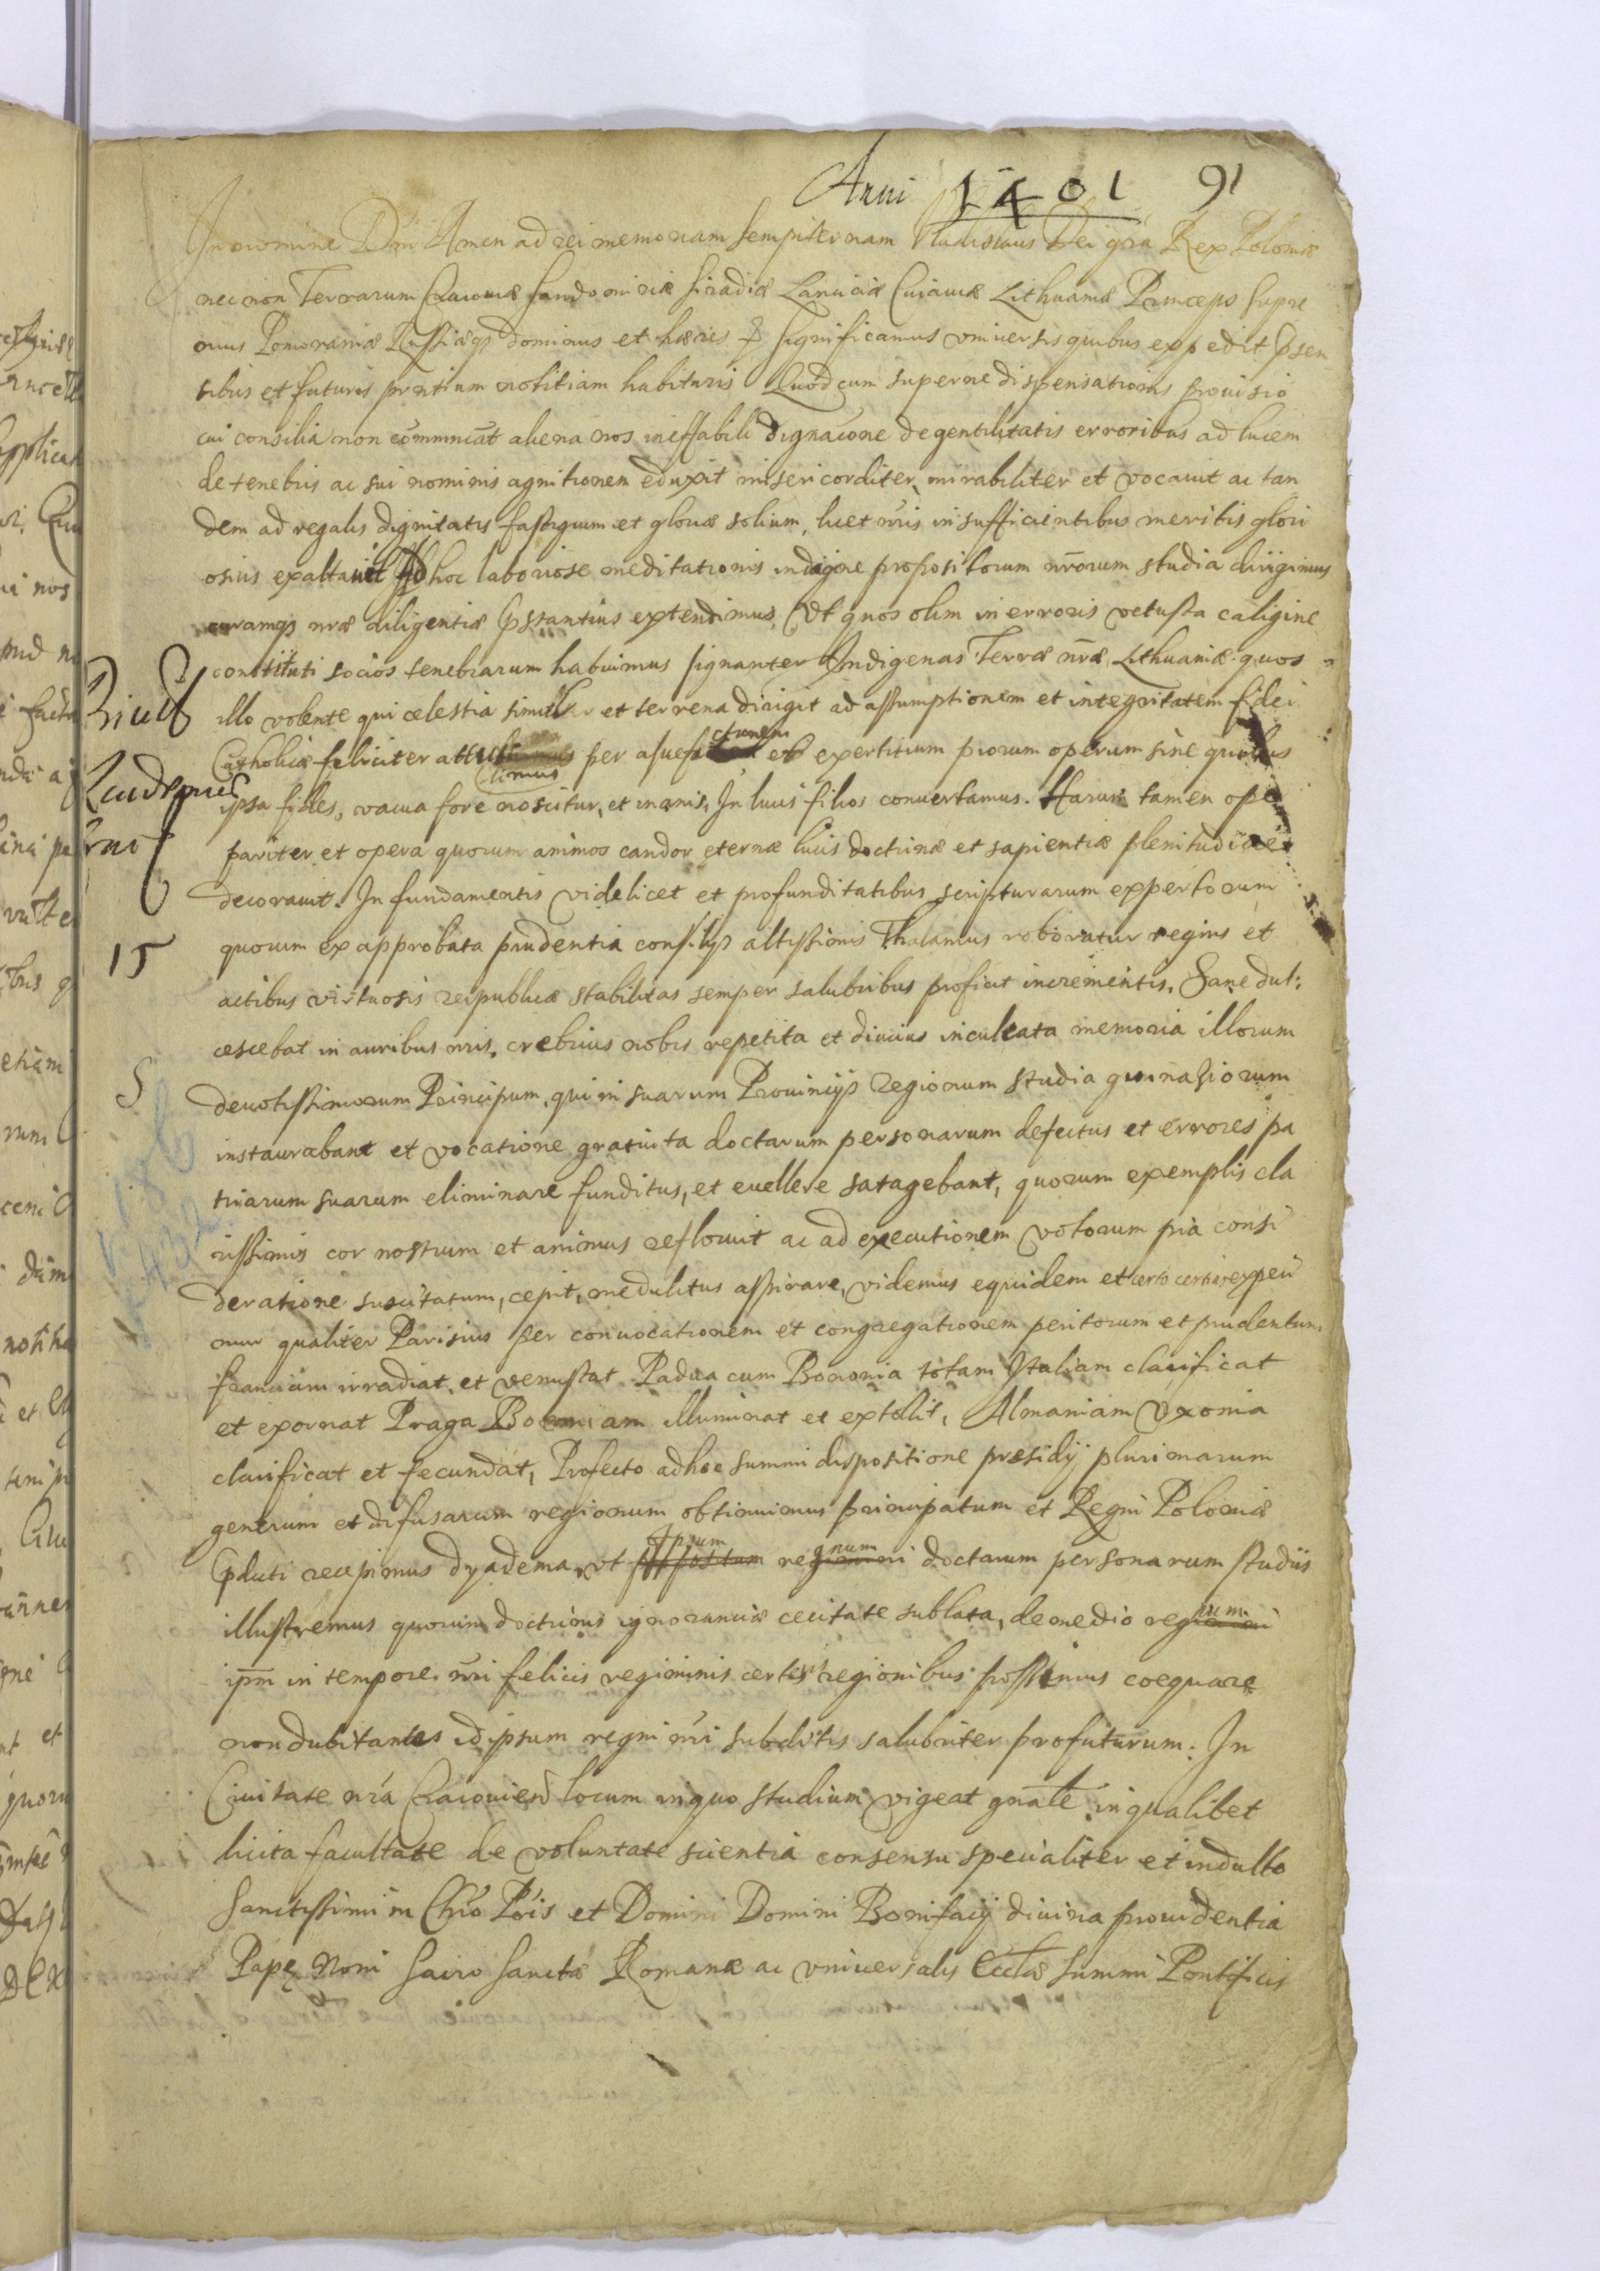 Anni 1401 91
In nomine Dni Amen ad rei memoriam sempiternam Vladislaus Dei gra Rex Poloniæ
nec non Terrarum Cracoviæ Sandomiriæ Siradiæ Lanciciæ Cuiaviæ Lithuaniæ Princeps supre
mus Pomoraniæ Russiæqz dominus et hæres Significamus universis quibus expedit psen
tibus et futuris pntium notitiam habituris Quod cum supernæ dispensationis provisio
cui consilia non cōmunicāt aliena nos ineffabili dignacione de gentilitatis erroribus ad lucem
de tenebris ac sui nominis agnitionem eduxit misericorditer, mirabiliter et vocavit ac tan
dem ad regalis dignitatis fastigium et gloriæ solium, licet nris insufficientibus meritis glori
osius exaltavit Ad hoc laboriose meditationis indagine propositorum nrorum studia dirigimus
curamqz nræ diligentiæ pstantius extendimus, Ut quos olim in erroris vetusta caligine
constituti socios tenebrarum habuimus signanter Indigenas Terræ nræ Lithuaniæ quos
illo volente qui celestia simul et terrena dirigit ad assumptionem et integritatem fidei
Catholicæ feliciter attulimus per assue ctionem et expertitium piorum operum sine quibus
timus
ipsa fides, vacua fore noscitur, et inanis, In lucis filios convertamus. Harum tamen ope
pariter et opera quorum animos candor eternæ lucis doctrinæ et sapientiæ plenitudine
decoravit. In fundamentis videlicet et profunditatibus scripturarum expertorum
quorum ex approbata prudentia consilijs altissimis Thalamus roboratur regius et
actibus virtuosis reipublicæ stabilitas semper salubribus proficit incrementis. Sane dul:
cescebat in auribus nris, crebrius nobis repetita et diucius inculcata memoria illorum
devotissimorum Principum, qui in suarum Provincijs regionum studia gimnasiorum
instaurabant et vocatione gratuita doctarum personarum defectus et errores pa
triarum suarum eliminare funditus, et evellere satagebant, quorum exemplis cla
rissimis cor nostrum et animus refloruit ac ad executionem votorum pia consi
deratione suscitatum, cepit, medulitus aspirare, videmus equidem et certo certius experi
mur qualiter Parisius per convocationem et congregationem peritorum et prudentum
franciam irradiat, et venustat Padua cum Bononia totam Italiam clarificat
et exornat Praga Boemiam illuminat et extollit, Almaniam Uxonia
clarificat et fecundat, Profecto ad hoc summi dispositione præsidij plurimarum
generum et difusarum regionum obtinuimus principatum et Regni Poloniæ
pluti recepimus dyadema, ut Ipsum regnum doctarum personarum studiis
illustremus quorum doctrinis ignoranciæ cecitate sublata, de medio regnum
ipm in tempore nri felicis regiminis certis regionibus possimus coequare
non dubitantes id ipsum regni nri subditis salubriter profuturum. In
Civitate nra Cracovien locum in quo studium vigeat gnale in qualibet
licita facultate de voluntate scientia consensu specialiter et indulto
Sanctissimi in Chro Pris et Domini Domini Bonifacij divina providentia
Papę Noni Sacro Sanctæ Romanæ ac universalis Ecclæ Summi Pontificis
15
S